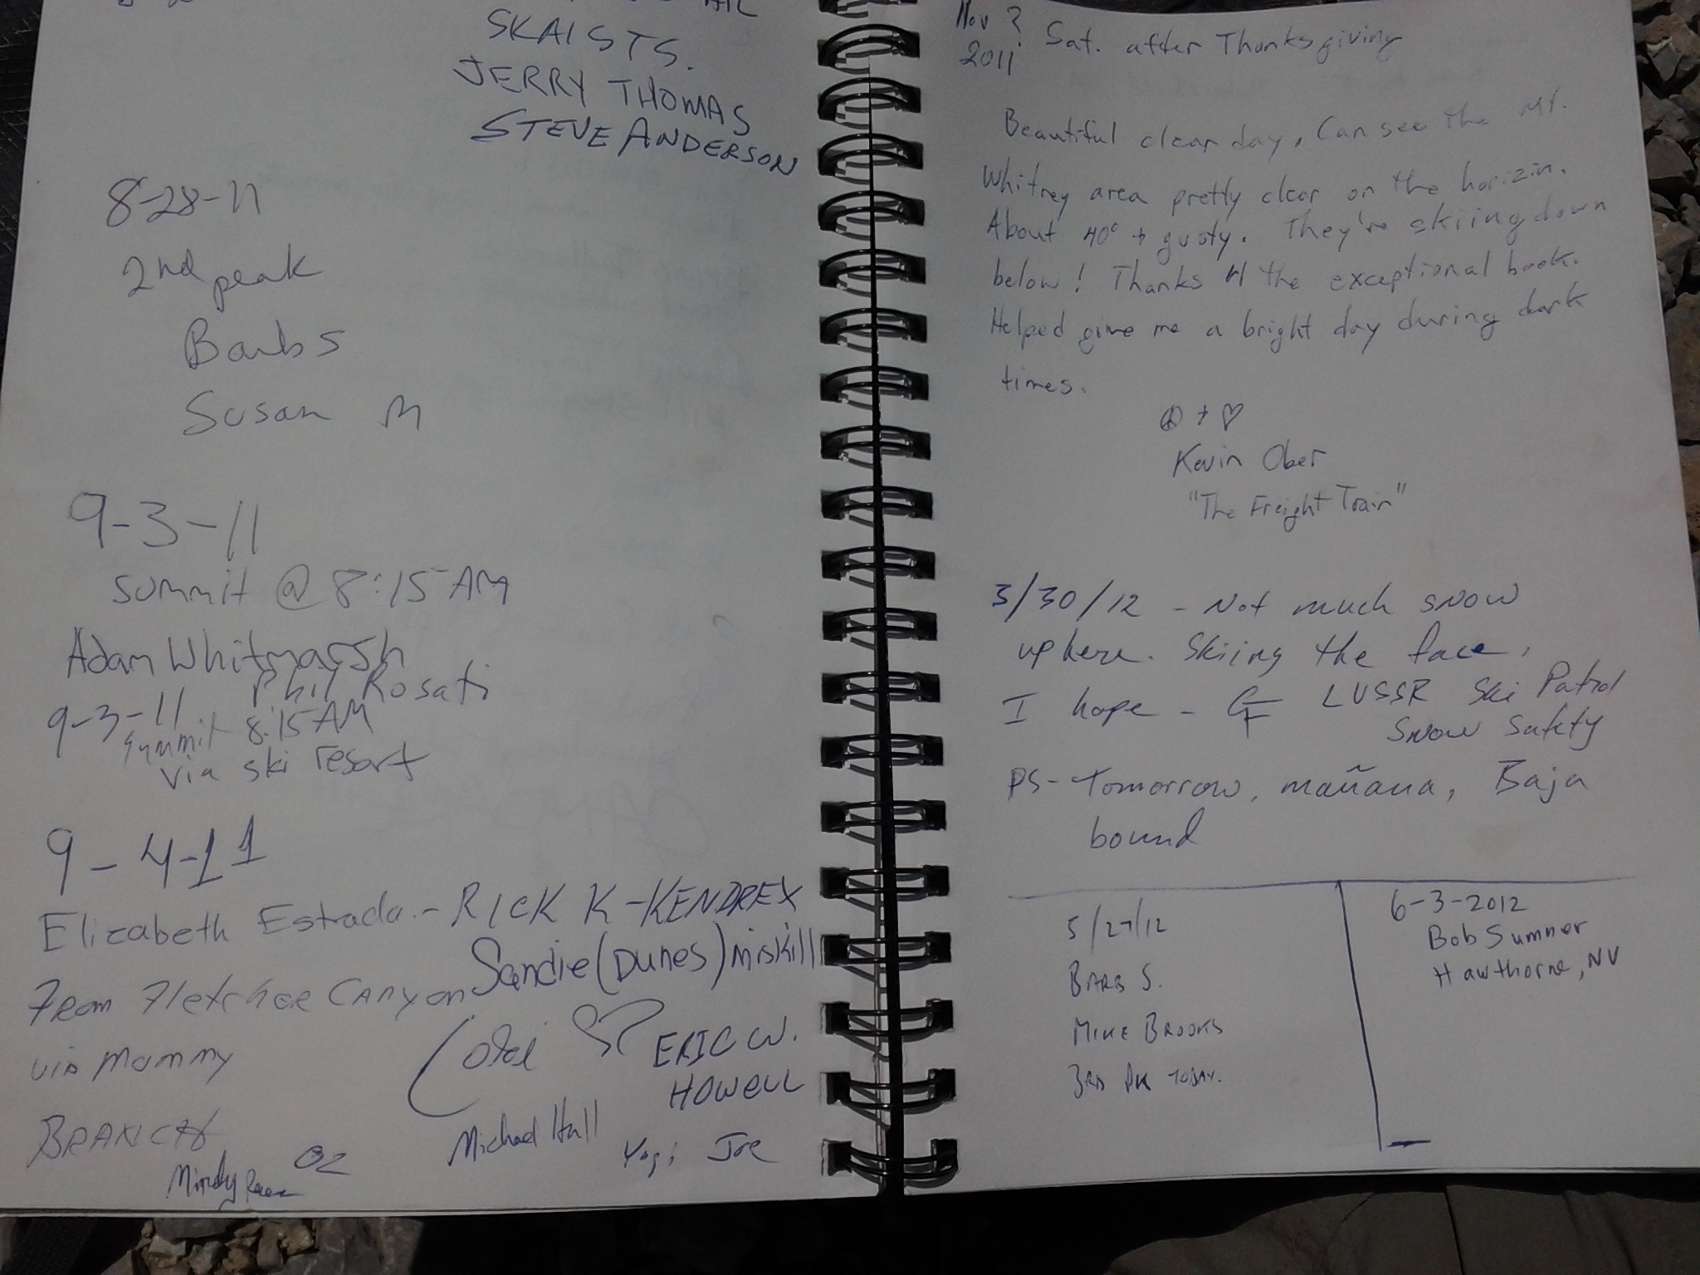 SKAISTS.
JERRY THOMAS
STEVE ANDERSON
8-28-11
2nd peak
Barbs
Susan M
9-3-11
summit @ 8:15 AM
Adam Whitmarsh
Phil Rosati
9-3-11
Summit 8:15 AM
via ski resort
9-4-11
Elizabeth Estrada - RICK K-KENDREX
Sandie (Dunes) Miskill
From Fletcher Canyon
via Mummy
BRANCH
ERIC W.
HOWELL
Michael Hall
Yogi Joe
Mindy
OZ
Nov ?
2011
Sat. after Thanksgiving
Beautiful clear day, Can see the Mt.
Whitney area pretty clear on the horizin.
About 40° + gusty. They're skiing down
below! Thanks 4 the exceptional book.
Helped give me a bright day during dark
times.
☮ + ♡
Kevin Ober
"The Freight Train"
3/30/12 - Not much snow
up here. Skiing the face,
I hope - LVSSR Ski Patrol
Snow Safety
PS- Tomorrow, mañana, Baja
bound
5/27/12
BARB S.
MIKE BROOKS
3RD PK TODAY.
6-3-2012
Bob Sumner
Hawthorne, NV